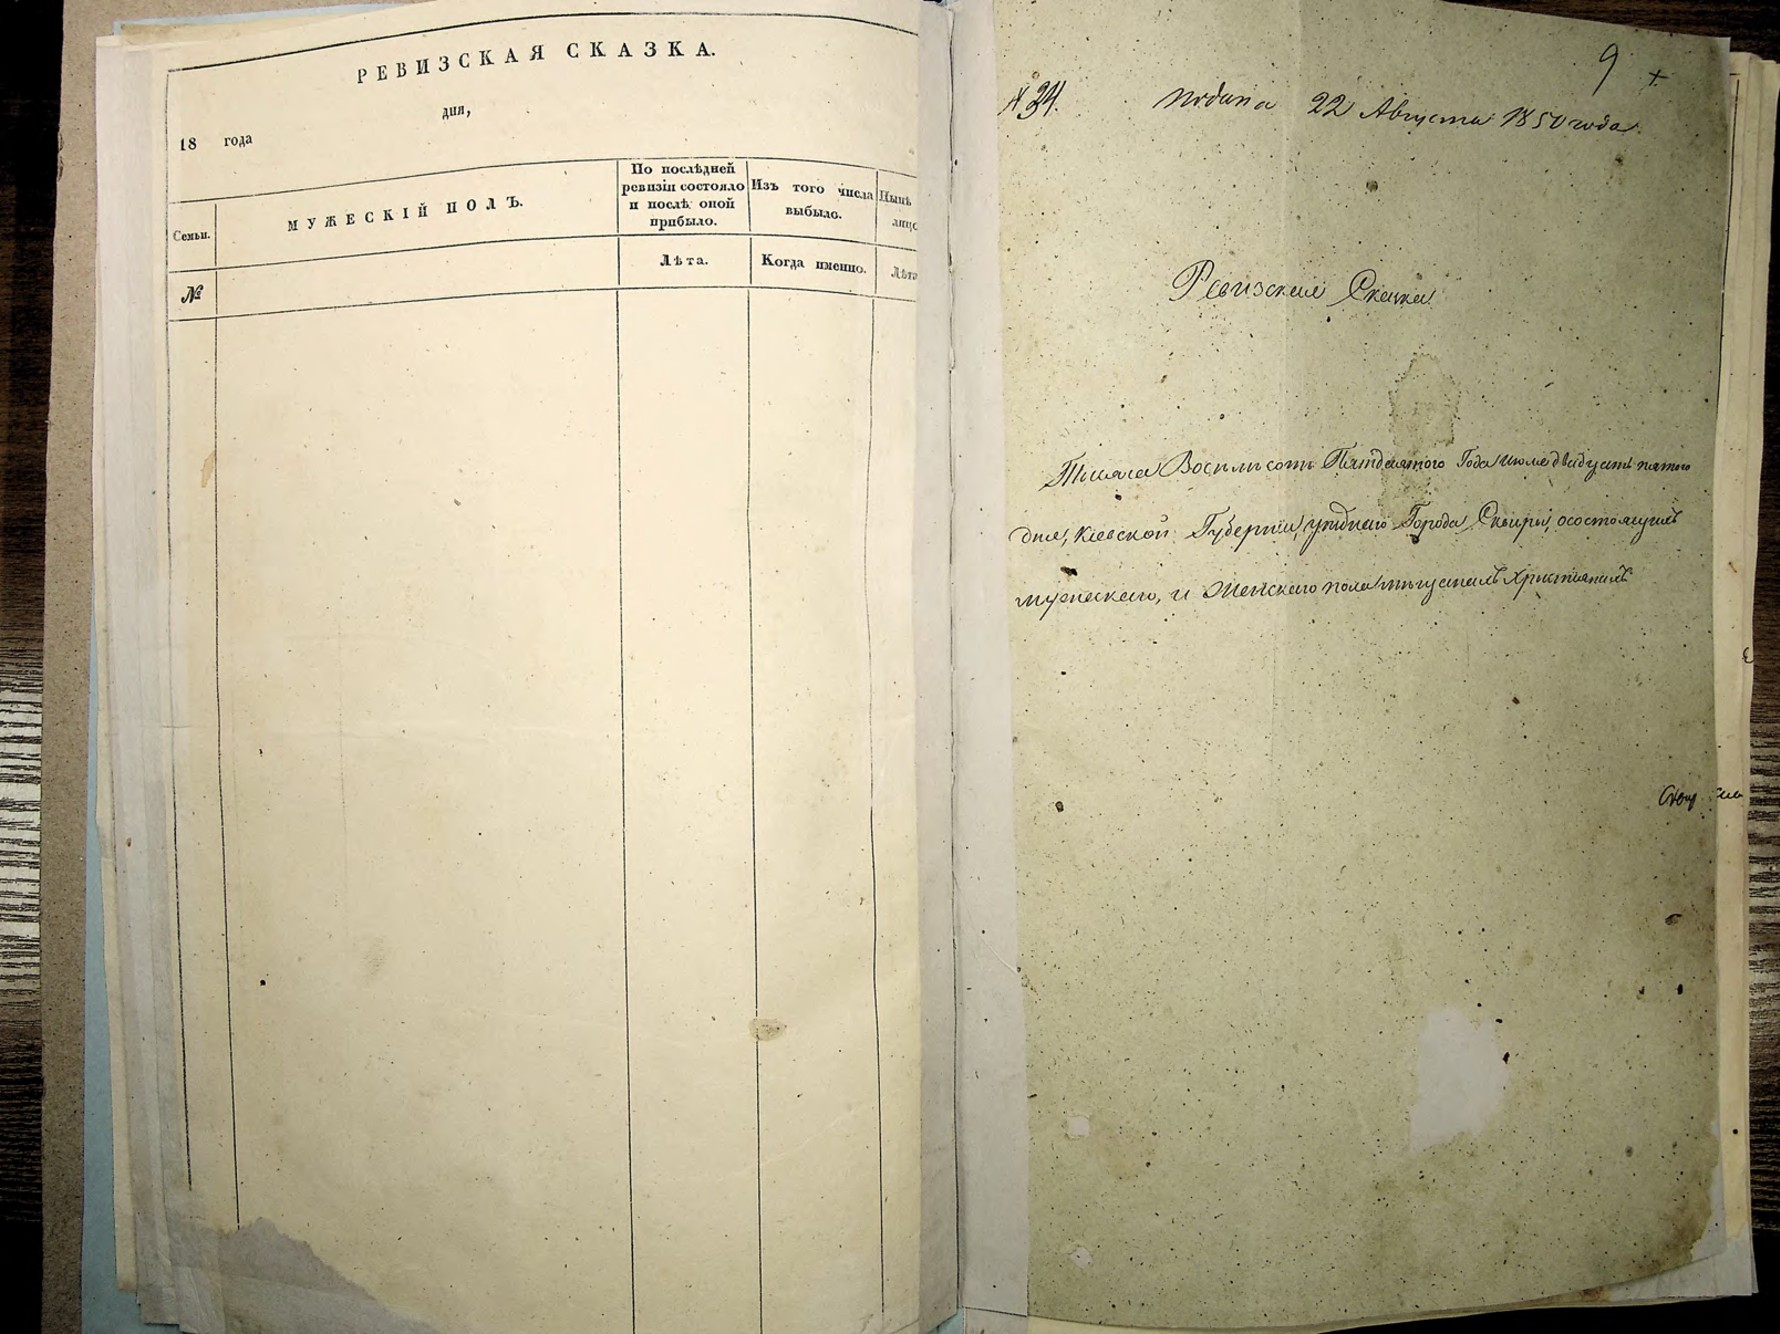 РЕВИЗСКАЯ СКАЗКА.
дня,
18 года
Семьи.
МУЖЕСКІЙ ПОЛЪ.
По послѣдней
ревизіи состояло
и послѣ оной
прибыло.
Изъ того числа
выбыло.
Нынѣ
лицо
№
Лѣта.
Когда именно.
Лѣта
9
№ 34. подана 22 Августа 1850 года
Ревизская Сказка
Тысяча Восемьсотъ Пятдесятого Года июля двадцать пятого
дня, Киевской Губернии, уездного Города Сквиры, осостоящихъ
мужескаго, и Женскаго пола мещанахъ Христианахъ